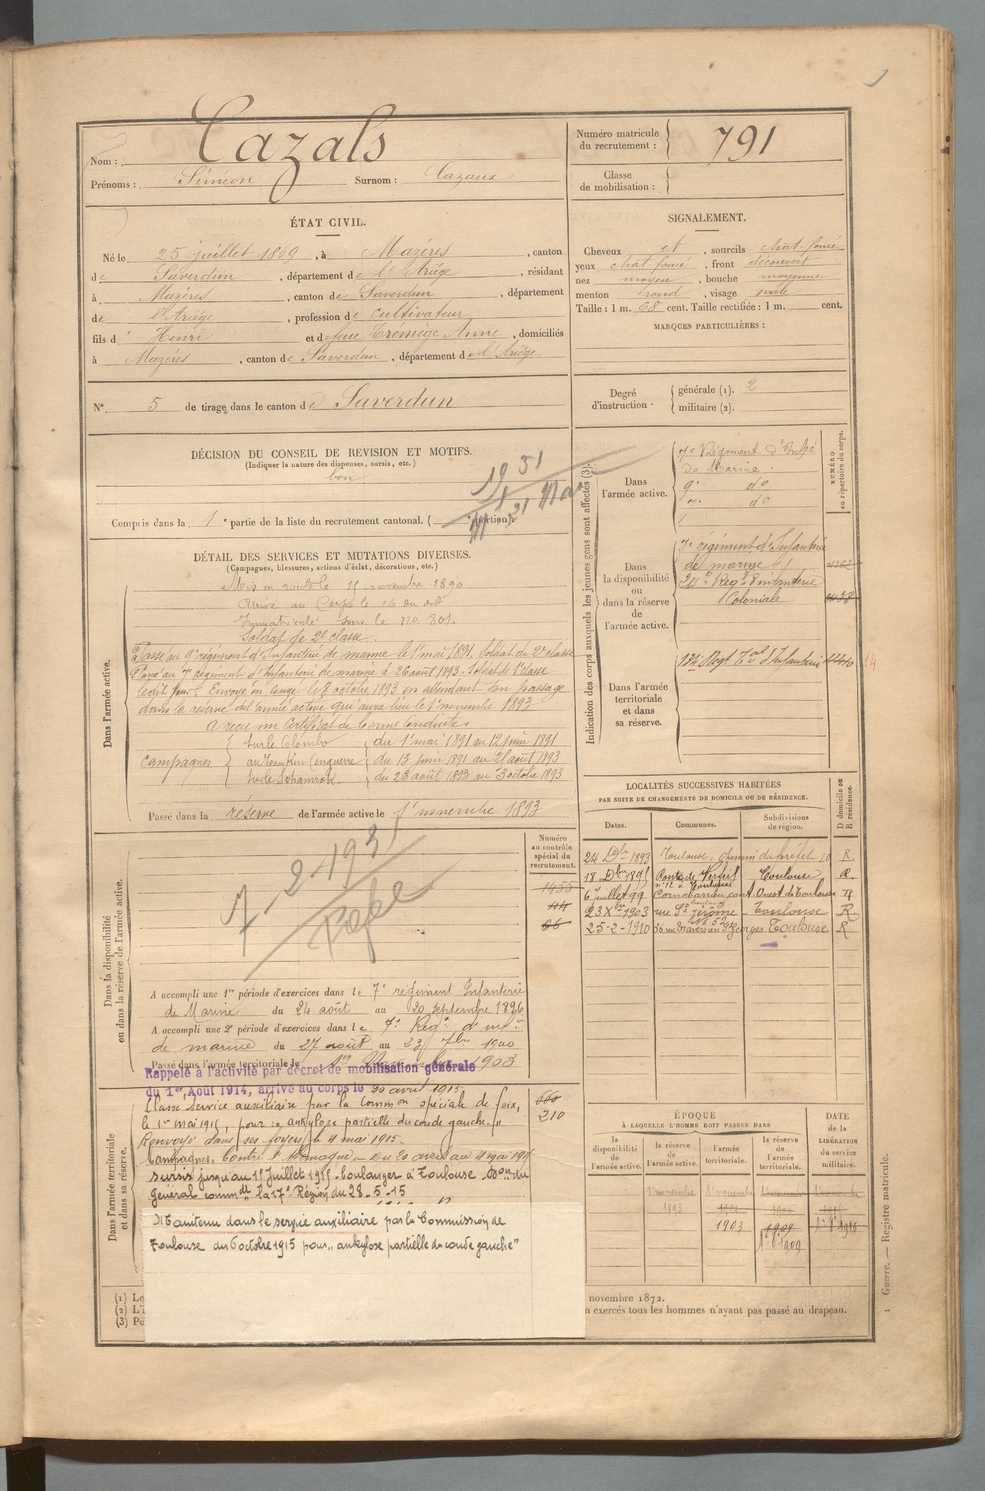 Nom : Cazals
Prénoms : Siméon Surnom : Cazaux
Numéro matricule du recrutement : 791
Classe de mobilisation :
ÉTAT CIVIL.
Né le 25 juillet 1869, à Mazères, canton
de Saverdun, département de l'Ariège, résidant
à Mazères, canton de Saverdun, département
de l'Ariège, profession de Cultivateur
fils d' Henri et de feue Trémège Anne, domiciliés
à Mazères, canton de Saverdun, département de l'Ariège
N° 5 de tirage dans le canton de Saverdun
SIGNALEMENT.
Cheveux et, sourcils chat. foncé
yeux chat foncé, front découvert
nez moyen, bouche moyenne
menton rond, visage ovale
Taille : 1 m. 68 cent. Taille rectifiée : 1 m. cent.
MARQUES PARTICULIÈRES :
Degré d'instruction . générale (1). 2
militaire (2).
DÉCISION DU CONSEIL DE REVISION ET MOTIFS.
(Indiquer la nature des dispenses, sursis, etc.)
bon
Compris dans la 1e partie de la liste du recrutement cantonal. ( portion).
1931
21 Mai
DÉTAIL DES SERVICES ET MUTATIONS DIVERSES.
(Campagnes, blessures, actions d'éclat, décorations, etc.)
Dans l'armée active.
Mis en route le 11 novembre 1890
Arrivé au Corps le 16 du dit
Immatriculé sous le no 801.
Soldat de 2e classe.
Passé au 9e régiment d'Infanterie de marine le 1er mai 1891. Soldat de 2e classe
Passé au 7e régiment d'Infanterie de marine le 26 août 1893. Soldat de 2e classe
le dit jour. Envoyé en congé le 8 octobre 1893 en attendant son passage
dans la réserve de l'armée active qui aura lieu le 1er novembre 1893
A reçu un Certificat de bonne Conduite
Campagnes
Sur le Colombo du 1er mai 1891 au 12 juin 1891
au Tonkin (en guerre du 13 juin 1891 au 21 août 1893
Sur le Schamrock. du 26 août 1893 au 3 octobre 1893
Passé dans la réserve de l'armée active le 1er novembre 1893
Indication des corps auxquels les jeunes gens sont affectés (3).
NUMÉRO au répertoire du corps.
Dans l'armée active.
7e Régiment d'Infie
de Marine.
9e do
7e do
Dans la disponibilité ou dans la réserve de l'armée active.
7e régiment d'Infanterie
de marine
Regt d'Infanterie
Coloniale
Dans l'armée territoriale et dans sa réserve.
Regt Tal d'Infanterie
14
LOCALITÉS SUCCESSIVES HABITÉES
PAR SUITE DE CHANGEMENTS DE DOMICILE OU DE RÉSIDENCE.
Dates. Communes. Subdivisions de région. D domicile ou R résidence.
24 Dbre 1893 Toulouse, R
18 Dbre 1895 Toulouse R
6 juillet 99 Cornebarrieu Ouest de Toulouse
23 Xbre 1903 rue St Jérôme Toulouse R
25-2-1910 Georges Toulouse R
Dans la disponibilité ou dans la réserve de l'armée active.
Numéro au contrôle spécial du recrutement.
1455
44
66
A accompli une 1re période d'exercices dans le 7e régiment Infanterie
de Marine du 24 août au 20 septembre 1896
A accompli une 2e période d'exercices dans le 7e Regt d'infie
de marine du 27 août au 23 7bre 1900
Passé dans l'armée territoriale le 1er Novembre 1903
Rappelé à l'activité par décret de mobilisation générale
du 1er Août 1914, arrivé au corps le 30 avril 1915
Dans l'armée territoriale et dans sa réserve.
660
210
Classé Service auxiliaire par la Common spéciale de foix,
le 1er mai 1915, pour ankylose partielle du coude gauche."
Renvoyé dans ses foyers le 11 mai 1915.
Campagnes. Contre l'Allemagne. - Du 30 avril au 11 mai 1915
sursis jusqu'au 1er juillet 1915. boulanger à Toulouse. Don du
Général commdt la 17e Région du 28-5-15
Maintenu dans le service auxiliaire par la Commission de
Toulouse du 6 octobre 1915 pour "ankylose partielle du coude gauche"
ÉPOQUE
À LAQUELLE L'HOMME DOIT PASSER DANS
DATE de la LIBÉRATION du service militaire.
la disponibilité de l'armée active. la réserve de l'armée active. l'armée territoriale. la réserve de l'armée territoriale.
1er novembre 1893
1er novembre
1903
1909
1915
(1) Le
(2) L'i
(3) Po
novembre 1872.
n exercés tous les hommes n'ayant pas passé au drapeau.
1 Guerre. — Registre matricule.